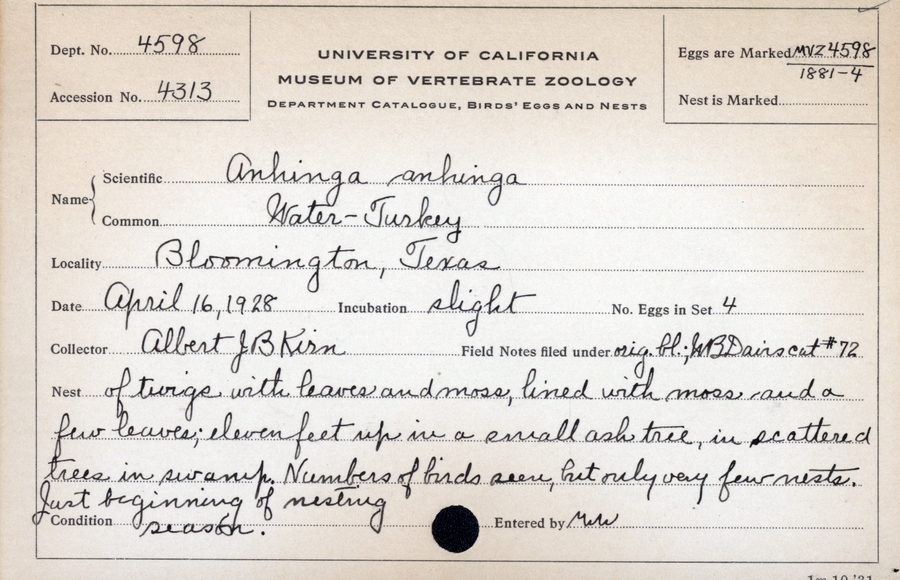 Dept. No. 4598
Accession No. 4313
UNIVERSITY OF CALIFORNIA
MUSEUM OF VERTEBRATE ZOOLOGY
DEPARTMENT CATALOGUE, BIRDS' EGGS AND NESTS
Eggs are Marked MVZ 4598
1881-4
Nest is Marked
Name
Scientific Anhinga anhinga
Common Water-Turkey
Locality Bloomington, Texas
Date April 16, 1928 Incubation slight No. Eggs in Set 4
Collector Albert J B Kirn Field Notes filed under orig. bl.; cat #72
Nest of twigs with leaves and moss, lined with moss and a
few leaves; eleven feet up in a small ash tree, in scattered
trees in swamp. Numbers of birds seen, but only very few nests.
Just beginning of nesting
Condition season. Entered by
1m 10 '31